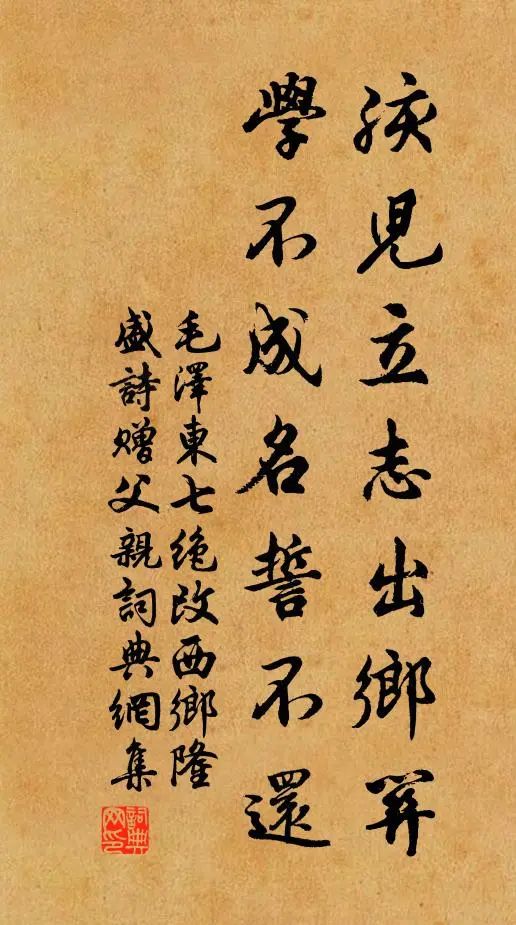 孩兒立志出鄉關
學不成名誓不還
毛澤東七绝改西鄉隆
盛詩贈父親詞典網集
詞典网印